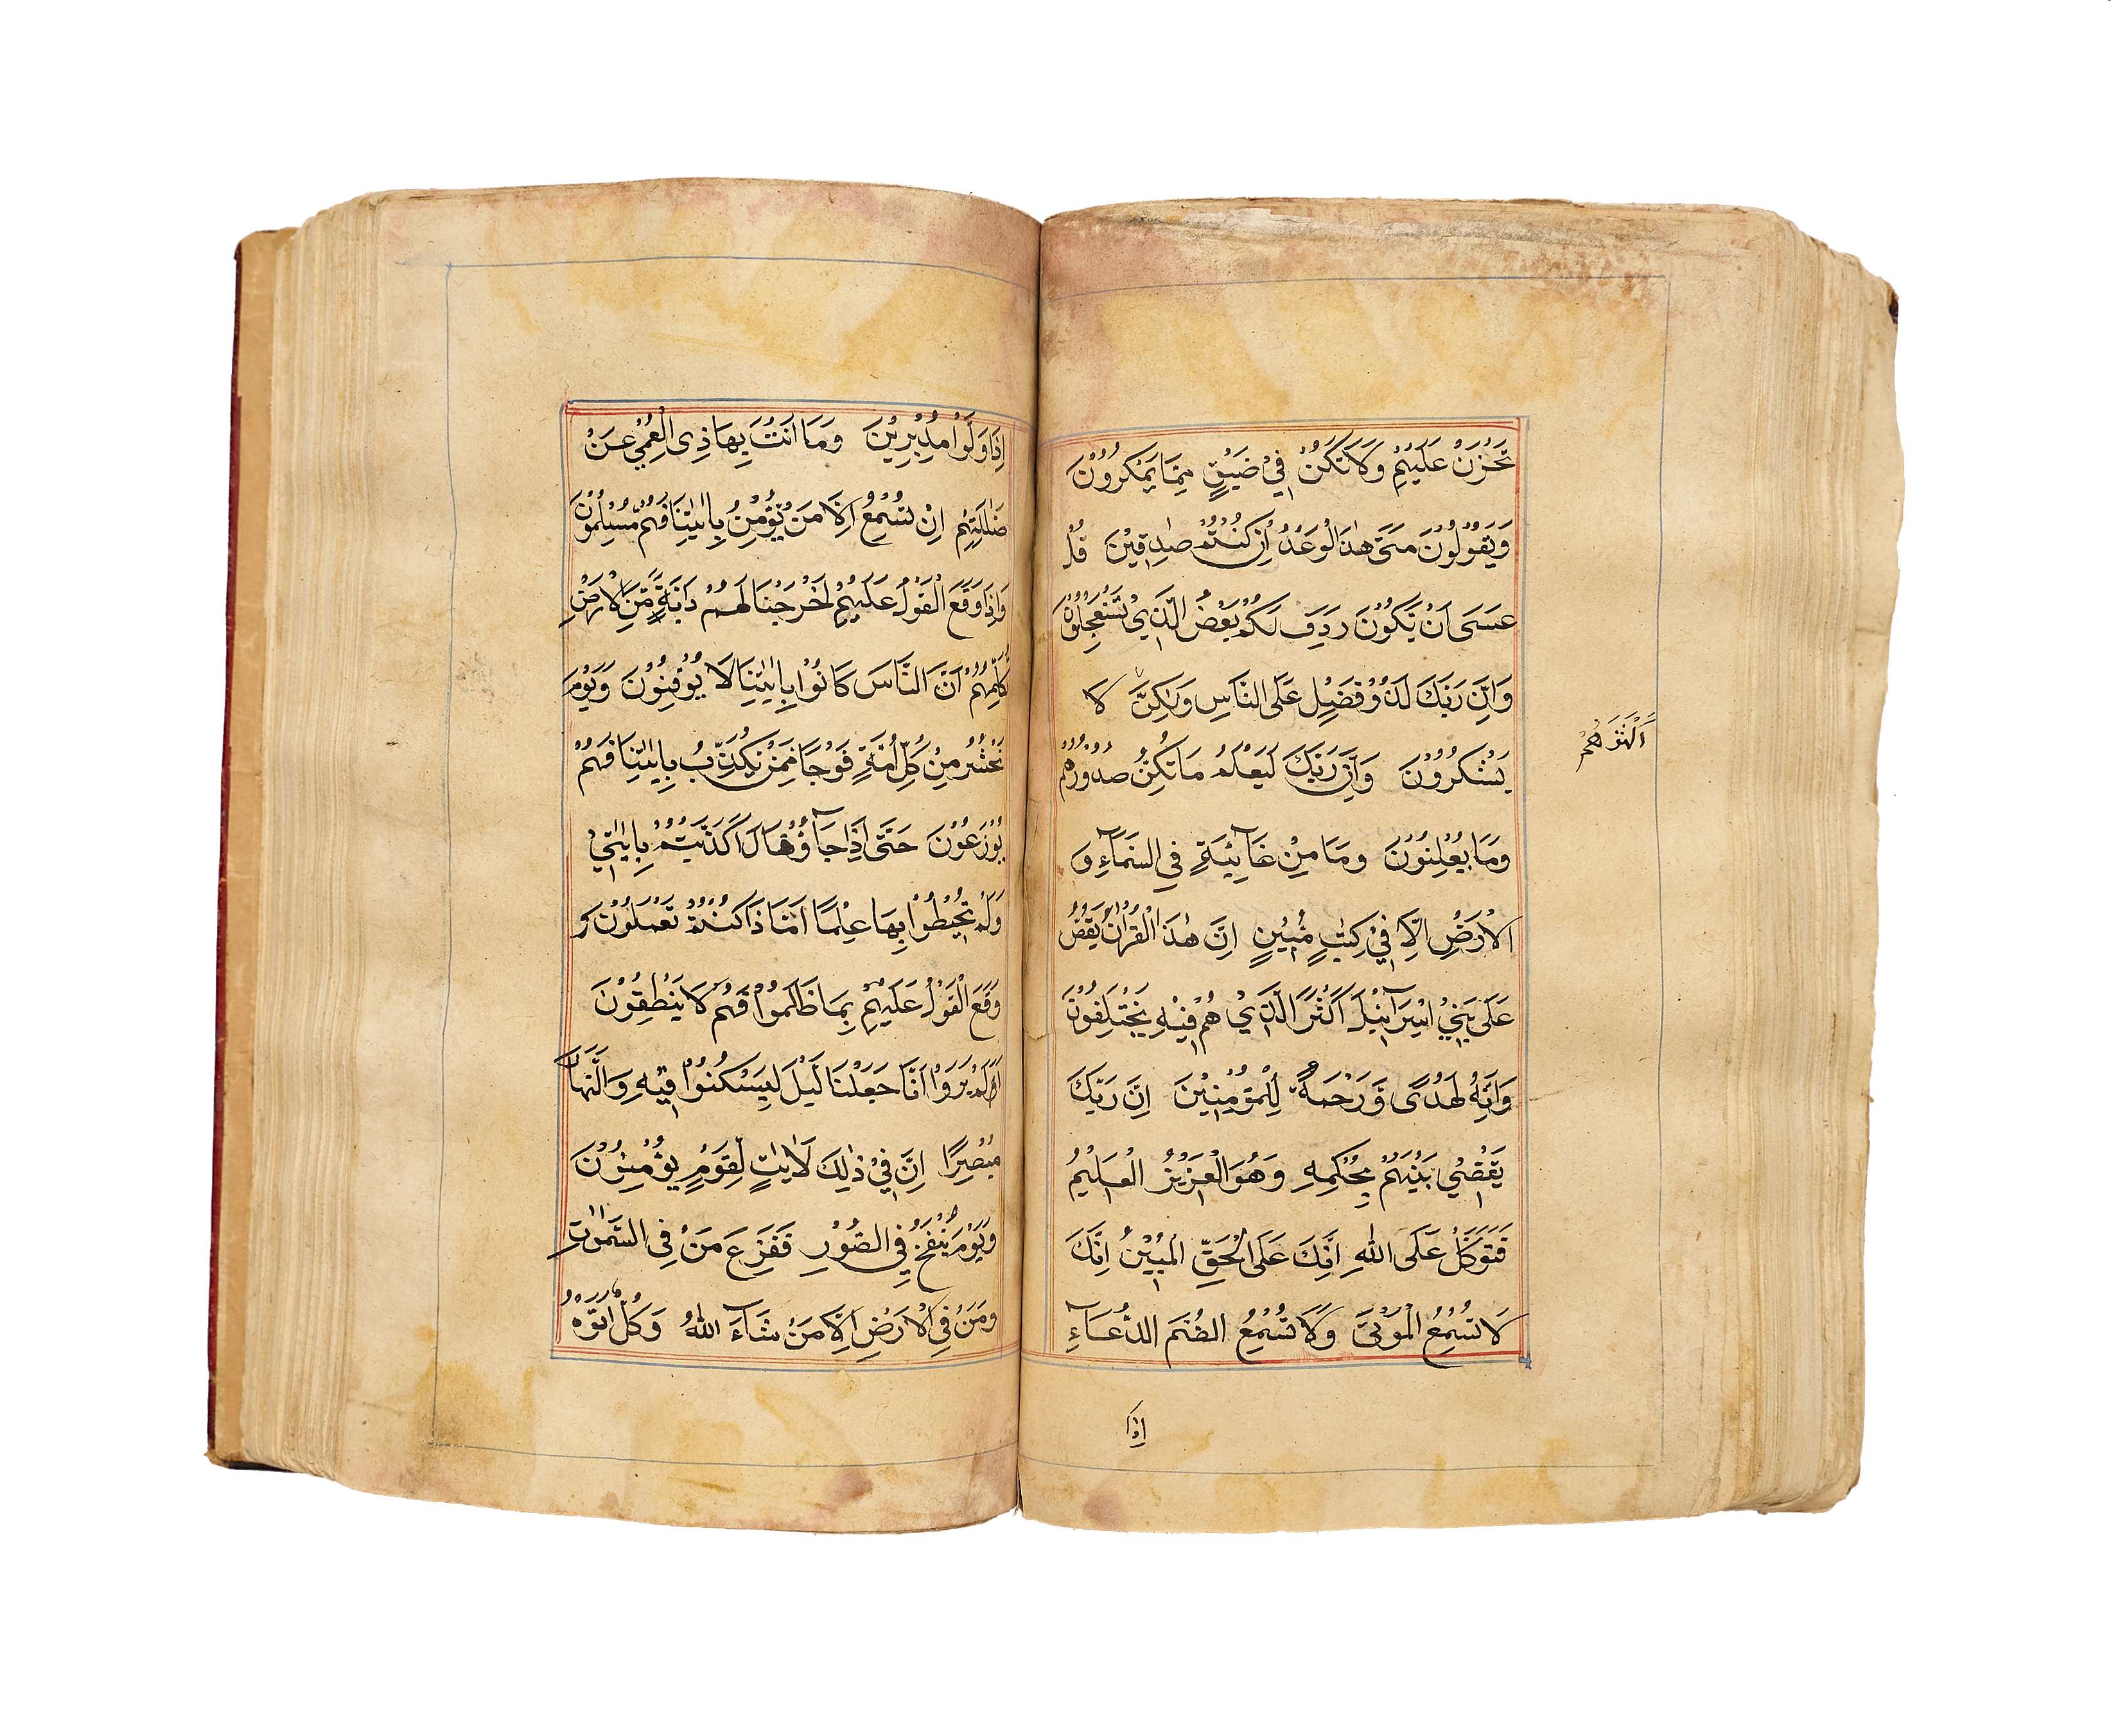 تَحْزَنْ عَلَيْهِمْ وَلَا تَكُنْ فِيْ ضَيْقٍ مِمَّا يَمْكُرُوْنَ
وَيَقُوْلُوْنَ مَتَى هٰذَا الْوَعْدُ اِنْ كُنْتُمْ صٰدِقِيْنَ قُلْ
عَسَى اَنْ يَّكُوْنَ رَدِفَ لَكُمْ بَعْضُ الَّذِيْ تَسْتَعْجِلُوْنَ
وَاِنَّ رَبَّكَ لَذُوْ فَضْلٍ عَلَى النَّاسِ وَلٰكِنَّ لَا
يَشْكُرُوْنَ وَاِنَّ رَبَّكَ لَيَعْلَمُ مَا تُكِنُّ صُدُوْرُهُمْ
اَكْثَرَهُمْ
وَمَا يُعْلِنُوْنَ وَمَا مِنْ غَآئِبَةٍ فِي السَّمَآءِ وَ
الْاَرْضِ اِلَّا فِيْ كِتٰبٍ مُّبِيْنٍ اِنَّ هٰذَا الْقُرْاٰنَ يَقُصُّ
عَلَى بَنِيْ اِسْرَآئِيْلَ اَكْثَرَ الَّذِيْ هُمْ فِيْهِ يَخْتَلِفُوْنَ
وَاِنَّهُ لَهُدًى وَّرَحْمَةٌ لِلْمُؤْمِنِيْنَ اِنَّ رَبَّكَ
يَقْضِيْ بَيْنَهُمْ بِحُكْمِهِ وَهُوَ الْعَزِيْزُ الْعَلِيْمُ
فَتَوَكَّلْ عَلَى اللّٰهِ اِنَّكَ عَلَى الْحَقِّ الْمُبِيْنِ اِنَّكَ
لَا تُسْمِعُ الْمَوْتَى وَلَا تُسْمِعُ الصُّمَّ الدُّعَآءَ
اِذَا
اِذَا وَلَّوْا مُدْبِرِيْنَ وَمَا اَنْتَ بِهَادِى الْعُمْيِ عَنْ
ضَلٰلَتِهِمْ اِنْ تُسْمِعُ اِلَّا مَنْ يُّؤْمِنُ بِاٰيٰتِنَا فَهُمْ مُّسْلِمُوْنَ
وَاِذَا وَقَعَ الْقَوْلُ عَلَيْهِمْ اَخْرَجْنَا لَهُمْ دَابَّةً مِّنَ الْاَرْضِ
تُكَلِّمُهُمْ اَنَّ النَّاسَ كَانُوْا بِاٰيٰتِنَا لَا يُوْقِنُوْنَ وَيَوْمَ
نَحْشُرُ مِنْ كُلِّ اُمَّةٍ فَوْجًا مِّمَّنْ يُّكَذِّبُ بِاٰيٰتِنَا فَهُمْ
يُوْزَعُوْنَ حَتَّى اِذَا جَآؤُ قَالَ اَكَذَّبْتُمْ بِاٰيٰتِيْ
وَلَمْ تُحِيْطُوْا بِهَا عِلْمًا اَمَّا ذَا كُنْتُمْ تَعْمَلُوْنَ وَ
وَقَعَ الْقَوْلُ عَلَيْهِمْ بِمَا ظَلَمُوْا فَهُمْ لَا يَنْطِقُوْنَ
اَلَمْ يَرَوْا اَنَّا جَعَلْنَا لَّيْلَ لِيَسْكُنُوْا فِيْهِ وَالنَّهَارَ
مُبْصِرًا اِنَّ فِيْ ذٰلِكَ لَاٰيٰتٍ لِّقَوْمٍ يُؤْمِنُوْنَ
وَيَوْمَ يُنْفَخُ فِي الصُّوْرِ فَفَزِعَ مَنْ فِى السَّمٰوٰتِ
وَمَنْ فِى الْاَرْضِ اِلَّا مَنْ شَآءَ اللّٰهُ وَكُلٌّ اَتَوْهُ